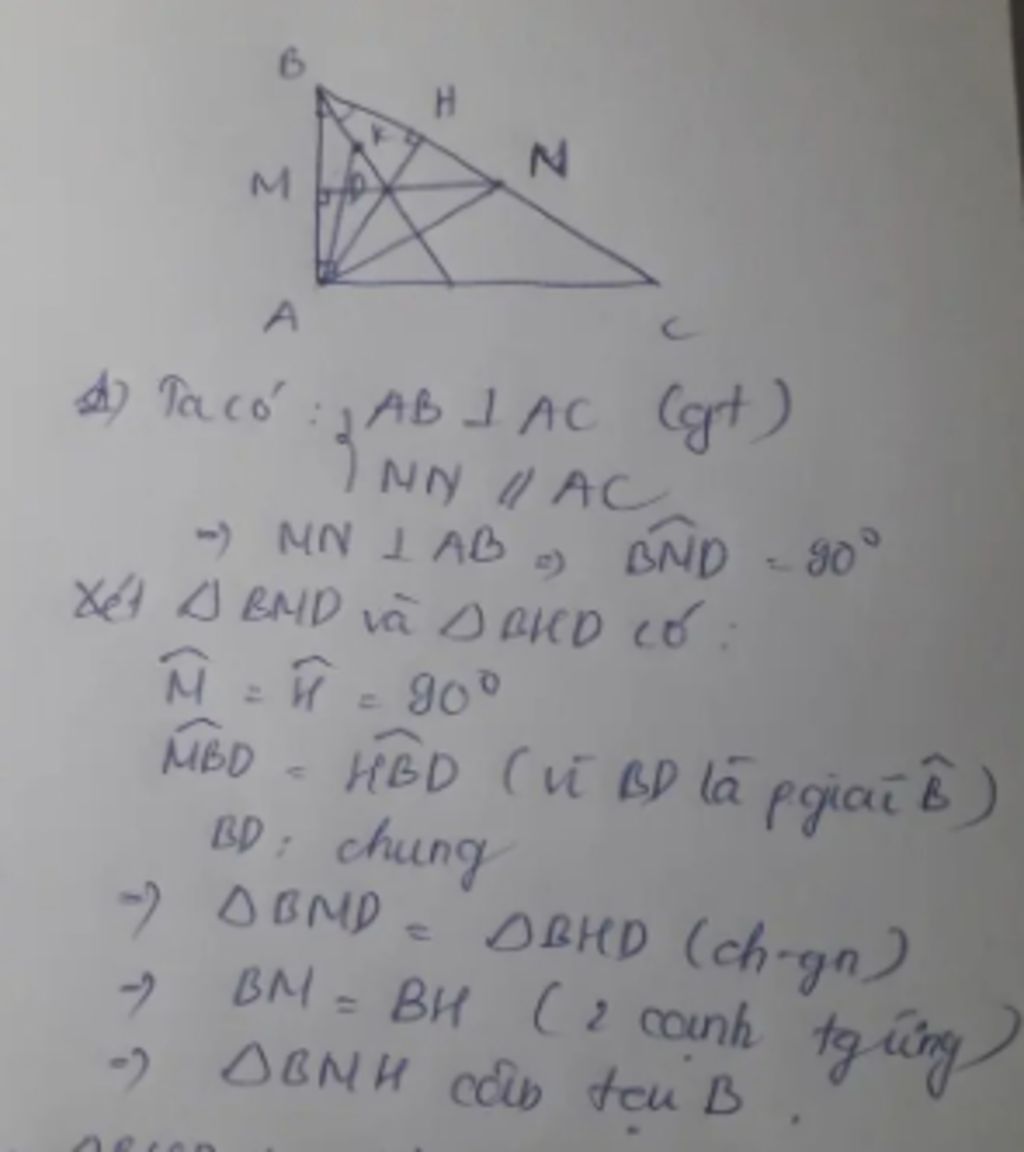 B
H
K
N
M
D
A
C
1) Ta có : { AB ⊥ AC (gt)
MN // AC
=> MN ⊥ AB => BMD = 90°
Xét Δ BMD và Δ BHD có :
M = H = 90°
MBD = HBD (vì BD là p.giác B)
BD : chung
=> Δ BMD = Δ BHD (ch-gn)
=> BM = BH (2 cạnh tg ứng)
=> Δ BMH cân tại B .